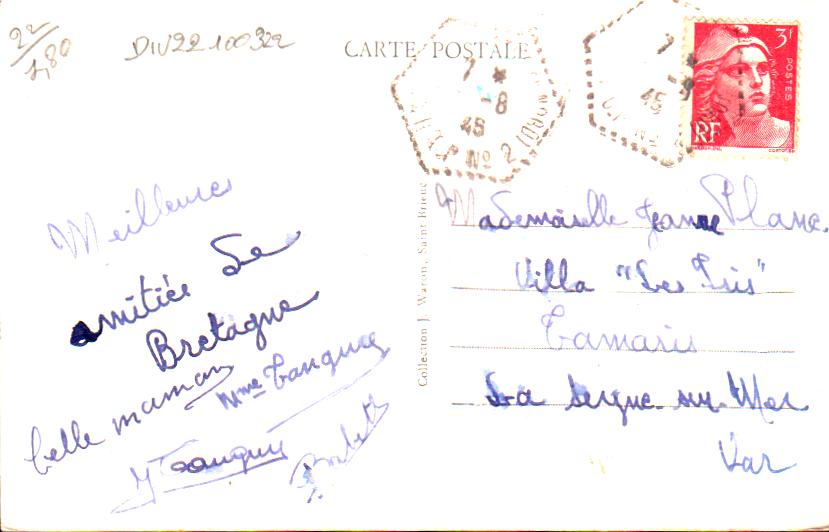 22/
1,80
DIV22100322
CARTE POSTALE
7 *
-8
45
No 2
7 *
-8
45
3f
POSTES
RF
Meilleures
amitiés de
Bretagne
belle maman
Mme Tanguy
Tanguy
Collection J. Waron, Saint-Brieuc
Mademoiselle Jeanne Planc
Villa "Les Iris"
Tamaris
La Seyne-sur-Mer
Var